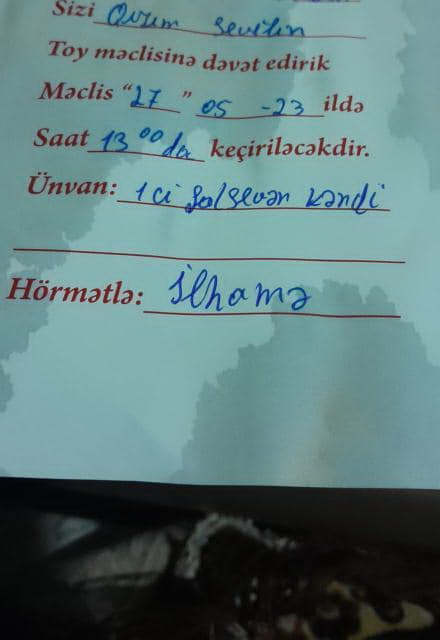 Sizi Qızım Sevilin
Toy məclisinə dəvət edirik
Məclis “27” 05 -23 ildə
Saat 13 00 da keçiriləcəkdir.
Ünvan: 1 ci kəndi
Hörmətlə: İlhamə